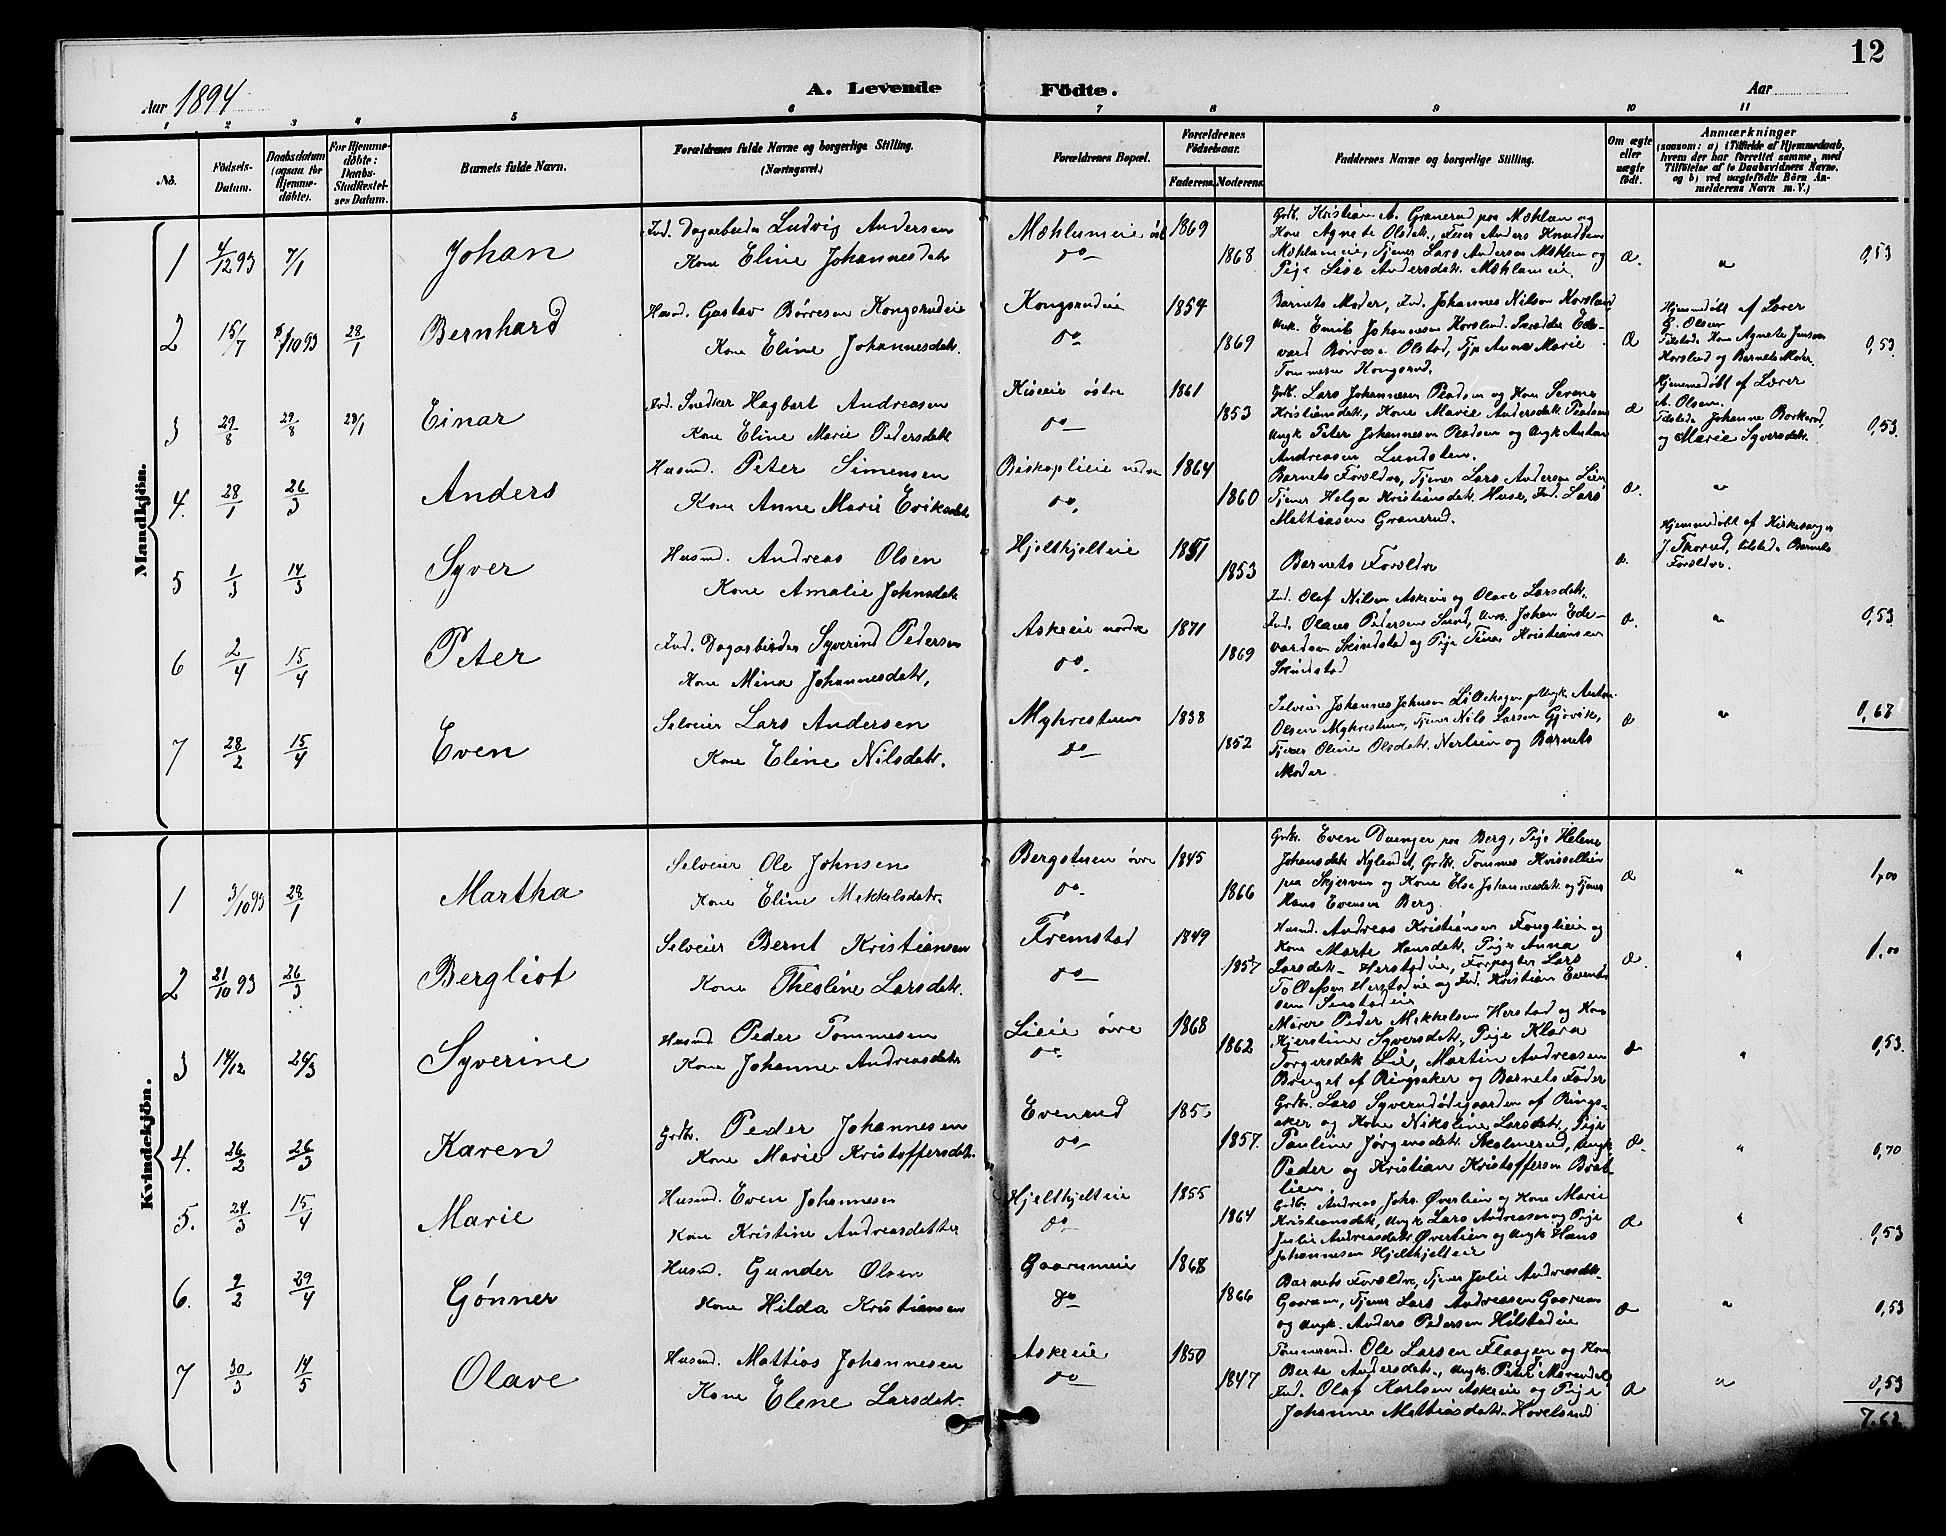 12
Aar 1894
A. Levende
Födte.
Aar
1 2 3 4 5 6 7 8 9 10 11
No.
Födsels-Datum.
Daabsdatum (ogsaa for Hjemmedöbte).
For Hjemmedöbte: Daabs-Stadfæstelses Datum.
Barnets fulde Navn.
Forældrenes fulde Navne og borgerlige Stilling. (Næringsvei.)
Forældrenes Bopæl.
Forældrenes Födselsaar.
Faderens. Moderens.
Faddernes Navne og borgerlige Stilling.
Om ægte eller uægte födt.
Anmærkninger (saasom: a) i Tilfælde af Hjemmedaab, hvem der har forrettet samme, med Tilföielse af to Daabsvidners Navne, og b) ved uægtefödte Börn Anmelderens Navn m. V.)
Mandkjön.
1 4/12 93 7/1 Johan
Ind. Dagarbeider Ludvig Andersen
Kone Eline Johannesdatr
Mæhlumeie öst 1869
do 1868
Grdb. Kristian A. Granerud paa Mæhlum og
Kone Agnete Olsdatr, Anders Knudsen
Mæhlumeie, Tjener Lars Andersen Mæhlum og
Pige Lise Andersdatr. Mæhlumeie.
æ. " 0,53
2 15/7 5/10 93 28/1 Bernhard
Husmd. Gustav Børresen Kongsrudeie
Kone Eline Johannesdatr.
Kongsrudeie 1854
do 1869
Barnets Moder, Ind. Johannes Nilsen Korslund
Ungk. Emil Johannesen Korslund. Skrædder Ed-
vard Børresen Olstad, Pige Anne Marie
Tommesen Kongsrud.
æ
Hjemmedöbt af Lærer
G. Olsen
Tilstede Kone Agnete Jensen
Korslund og Barnets Moder
0,53
3 29/8 29/8 28/1 Einar
Ind. Snedker Hagbart Andreasen
Kone Eline Marie Pedersdatr
Kiseie östre 1861
do 1853
Grdb. Lars Johannesen Pladsen og Kone Serene
Kristiansdatr, Kone Marie Andersdatr. Pladsen
Ungk Peter Johannesen Pladsen og Ungk Anton
Andreasen Lundsten.
æ
Hjemmedöbt af Lærer
A. Olsen.
Tilstede Johanne Borkerud,
og Marie Syversdatr.
0,53.
4. 28/1 26/3 Anders
Husmd. Peter Simensen
Kone Anne Marie Eriksdatr
Biskoplieie nedre 1864
do. 1860
Barnets Forældre, Tjener Lars Andersen Lien
Tjener Helga Kristiansdatr. Huse, Ind. Lars
Mattiasen Granerud.
æ. "
5 1/3 14/3 Syver
Husmd. Andreas Olsen
Kone Amalie Johnsdatr
Hjelthjelteie 1851
1853
Barnets Forældre
æ.
Hjemmedöbt af Kirkesanger
J. Skorud, tilstede Barnets
Forældre.
6 2/4 15/4 Peter
Ind. Dagarbeider Syverind Pedersen
Kone Mina Johannesdatr,
Askreie nordre 1871
do. 1869
Ind. Olaf Nilsen Askreie og Olave Larsdatr,
Ind. Olaus Pedersen Sund, Ungk. Johan Ed-
vardsen Skindstad og Pige Tina Kristiansen
Skindstad
æ. " 0,53
7 28/2 15/4 Even
Selveier Lars Andersen
Kone Eline Nilsdatr.
Myhrestuen 1838
do 1852
Selveier Johannes Johnsen Lillehagen Ungk Anton
Olsen Myhrestuen, Tjener Nils Larsen Gjövik,
Tjener Oline Olsdatr. Nerlien og Barnets
Moder.
æ " 0,68
Kvindekjön.
1 3/10 93 28/1 Martha
Selveier Ole Johnsen
Kone Eline Mikkelsdatr.
Bergstuen övre 1845
do. 1866
Grdb. Even paa Berg, Pige Helene
Johansdatr Nylendet, Grdb. Tommes Kvisellien
paa Skjerven og Kone Else Johannesdatr og Tjener
Hans Evensen Berg.
æ " 1,00
2 21/10 93 26/3 Bergliot
Selveier Bernt Kristiansen
Kone Thesline Larsdatr.
Fremstad 1849
do 1857
Husmd. Andreas Kristiansen Fouglieie og
Kone Marte Hansdatr, Pige Anna
Larsdatr Herstadeie, Forpagter Lars
Tollefsen Herstadeie og Ind. Kristian Evend-
sen
æ. " 1,00
3 14/12 26/3 Syverine
Husmd Peder Tommesen
Kone Johanne Andreasdatr
Lieie övre 1868
do 1862
Murer Peder Mikkelsen Herstad og Kone
Kjerstine Syversdatr, Pige Klara
Torgersdatr Lie, Martin Andreasen
Bruget af Ringsaker og Barnets Fader
æ " 0,53.
4. 26/2 26/3 Karen
Grdbr. Peder Johannesen
Kone Marie Kristoffersdatr.
Evenrud 185
do 1857.
Grdbr. Lars Syverudödegaarden af Rings-
aker og Kone Nikoline Larsdatr, Pige
Pauline Jörgensdatr. Skolmerud, Ungk.
Peder og Kristian Kristoffersen Brat-
lien.
æ. " 0,70
5. 24/3 15/4 Marie
Husmd. Even Johannesen
Kone Kristine Andreasdatter
Hjelthjelteie 1855
do 1864
Grdb. Andreas Johs. Överlien og Kone Marie
Kristiansdatr, Ungk Lars Andreasen og Pige
Julie Andreasdatr Överlien og Ungk Hans
Johannesen Hjelthjelteie
æ " 0,53
6. 9/2 29/4 Gønner
Husmd. Gunder Olsen
Kone Hilda Kristiansen
Gaarumeie 1868
do 1866
Barnets Forældre, Tjener Julie Andreasdatr
Gaarum, Tjener Lars Andreasen Gaarum
og Ungk. Anders Pedersen Hilstadeie
æ " 0,53
7 30/3 14/5 Olave
Husmd. Mattias Johannesen
Kone Elene Larsdatr.
Askreie 1850
do 1847
Tömmermd. Ole Larsen Flaagen og Kone
Berte Andersdatr, Ungk. Peter
Ind. Olaf Karlsen Askreie og Pige
Johanne Mattiasdatr. Hovelsrud
æ " 0,53
7,62